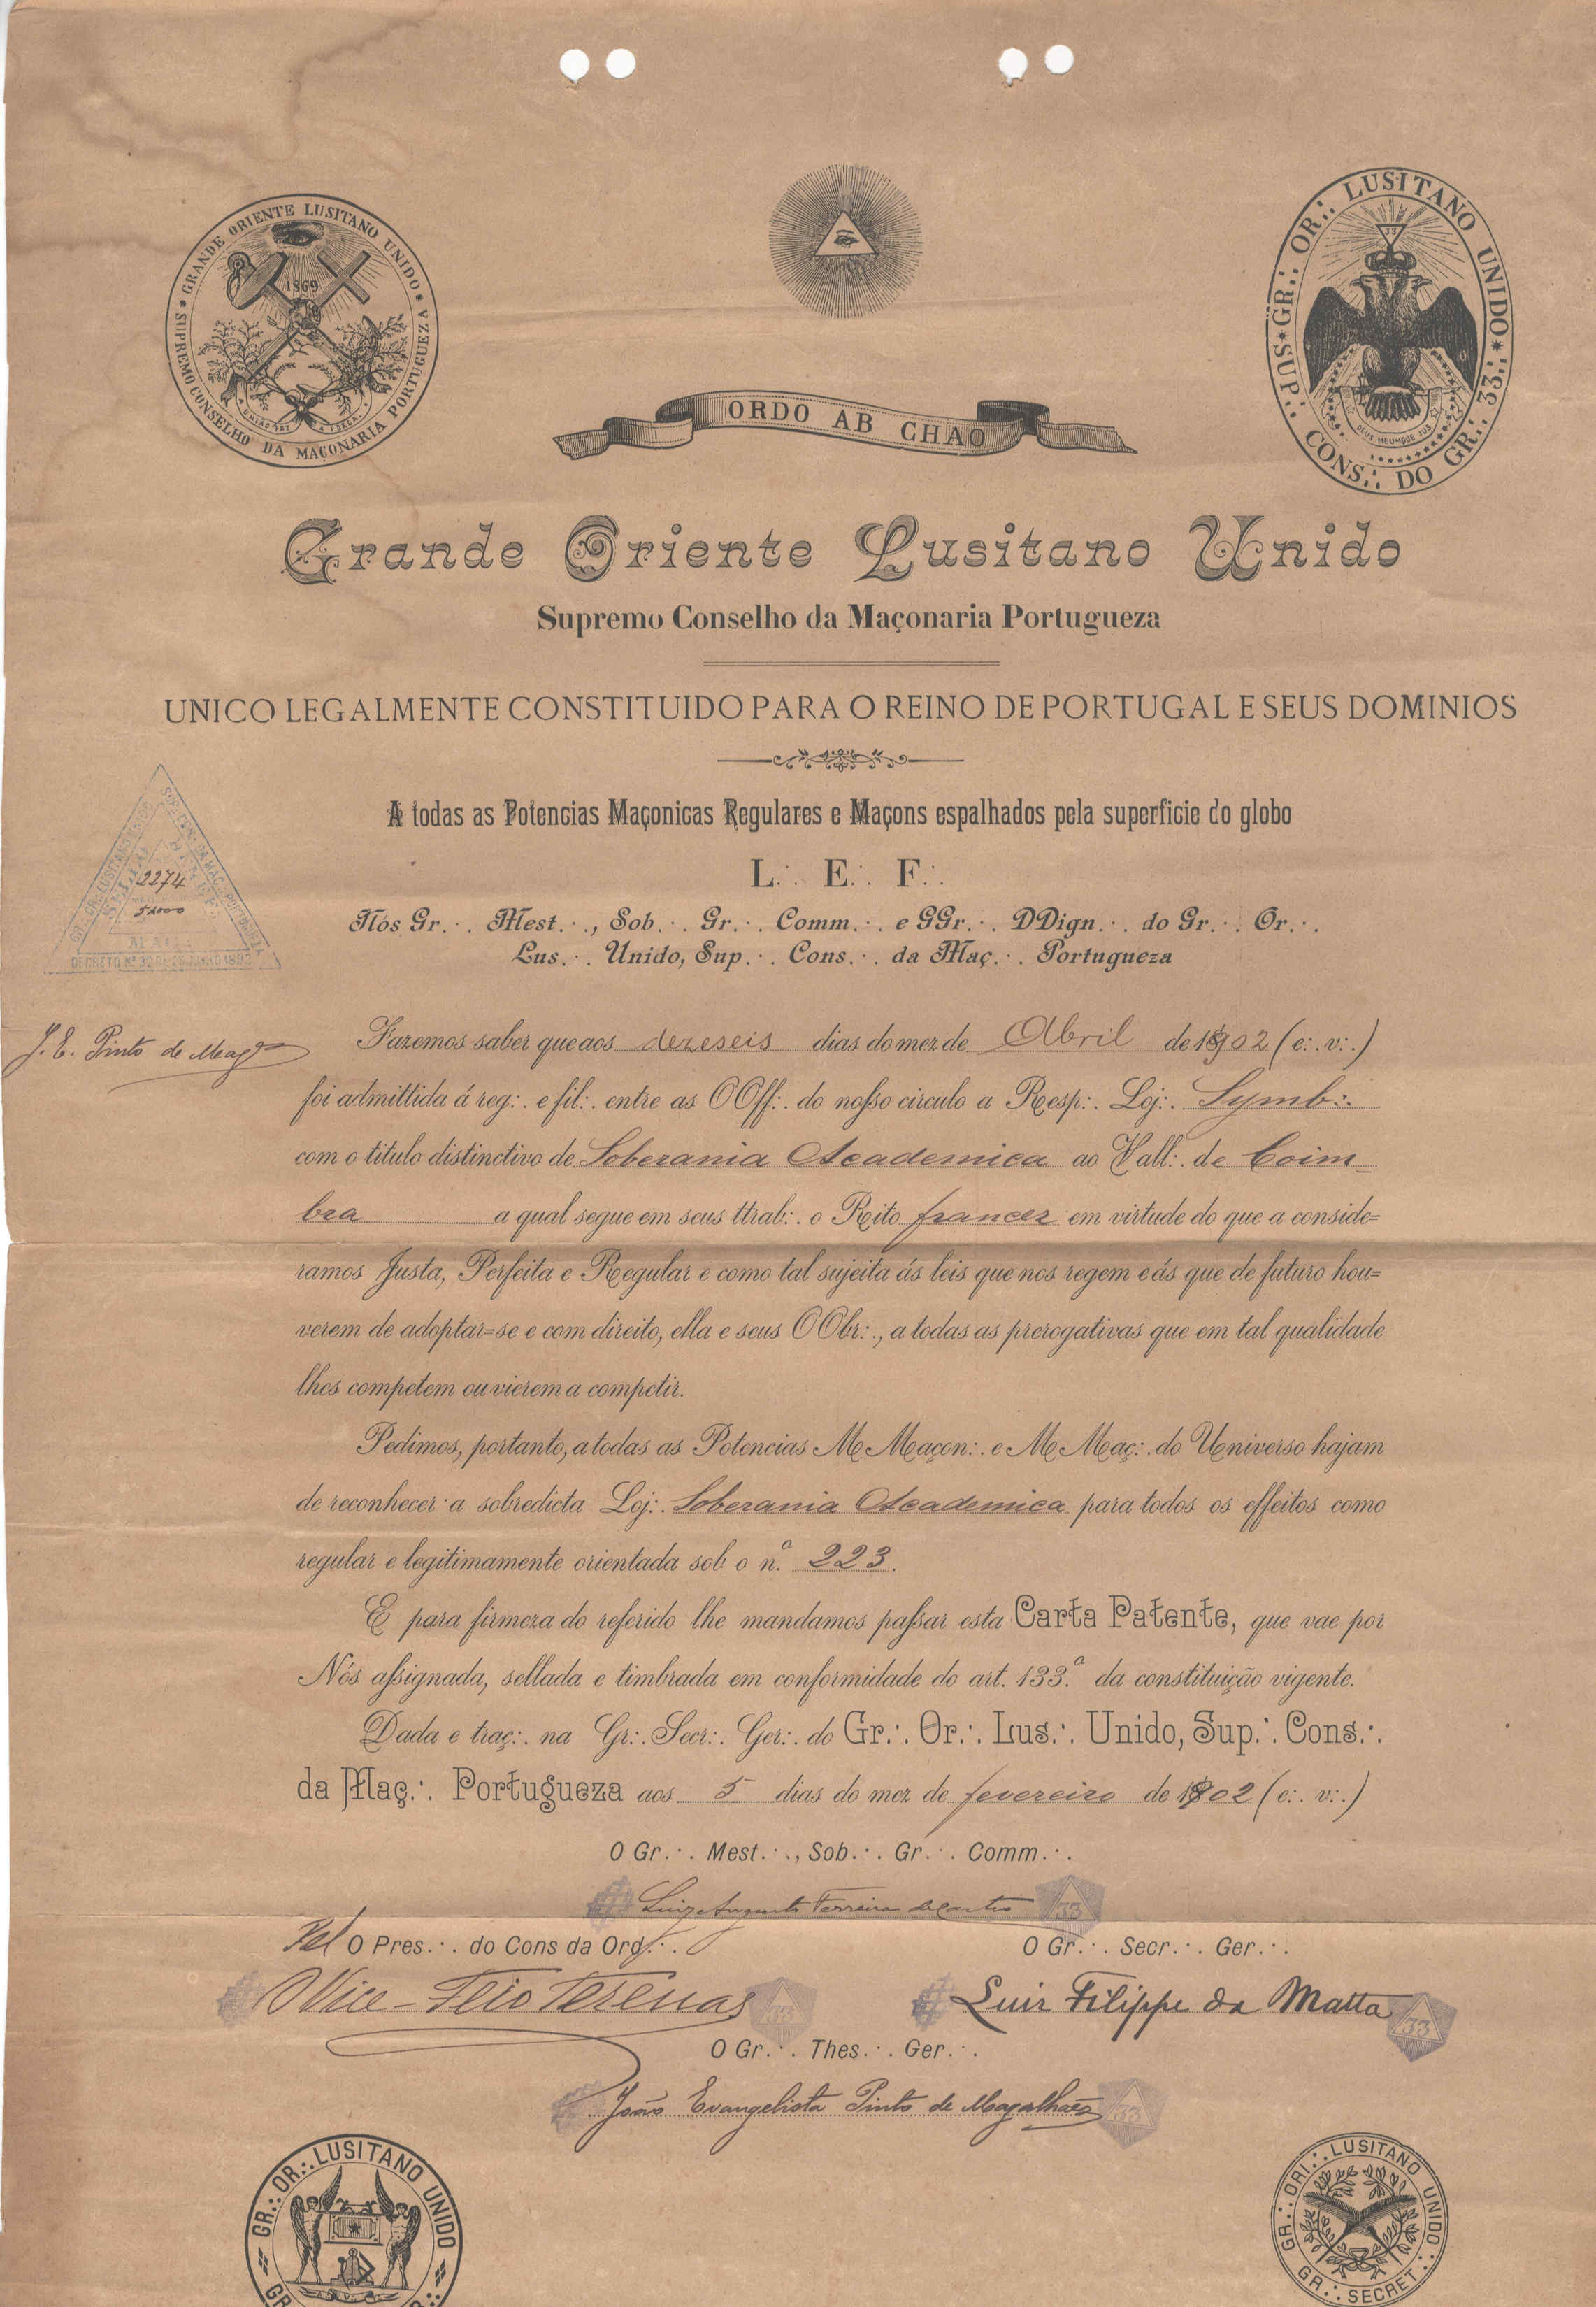 * GRANDE ORIENTE LUSITANO UNIDO * SUPREMO CONSELHO DA MAÇONARIA PORTUGUEZA
1869
SUP∴ CONS∴ DO GR∴ 33∴ * JUS * GR∴ OR∴ LUSITANO UNIDO *
33
DEUS MEUMQUE JUS
ORDO AB CHAO
Grande Oriente Lusitano Unido
Supremo Conselho da Maçonaria Portugueza
UNICO LEGALMENTE CONSTITUIDO PARA O REINO DE PORTUGAL E SEUS DOMINIOS
A todas as Potencias Maçonicas Regulares e Maçons espalhados pela superficie do globo
L∴ E∴ F∴
2274
5$000
Nós Gr∴ Mest∴, Sob∴ Gr∴ Comm∴ e GGr∴ DDign∴ do Gr∴ Or∴
Lus∴ Unido, Sup∴ Cons∴ da Maç∴ Portugueza
J. E. Pinto de Mag.es
Fazemos saber que aos dezeseis dias do mez de Abril de 1902 (e∴ v∴)
foi admittida á reg∴ e fil∴ entre as OOff∴ do nosso circulo a Resp∴ Loj∴ Symb∴
com o titulo distinctivo de Soberania Academica ao Vall∴ de Coim
bra a qual segue em seus ttrab∴ o Reito francez em virtude do que a conside=
ramos Justa, Perfeita e Regular e como tal sujeita ás leis que nos regem e ás que de futuro hou=
verem de adoptar=se e com direito, ella e seus OObr∴, a todas as prerogativas que em tal qualidade
lhes competem ou vierem a competir.
Pedimos, portanto, a todas as Potencias MMaçon∴ e MMaç∴ do Universo hajam
de reconhecer a sobredicta Loj∴ Soberania Academica para todos os effeitos como
regular e legitimamente orientada sob o n.º 223.
E para firmeza do referido lhe mandamos passar esta Carta Patente, que vae por
Nós assignada, sellada e timbrada em conformidade do art. 133.º da constituição vigente.
Dada e traç∴ na Gr∴ Secr∴ Ger∴ do Gr∴ Or∴ Lus∴ Unido, Sup∴ Cons∴
da Maç∴ Portugueza aos 5 dias do mez de fevereiro de 1902 (e∴ v∴)
O Gr∴ Mest∴, Sob∴ Gr∴ Comm∴
Luiz Augusto Ferreira de Castro 33
Pel O Pres∴ do Cons da Ord∴ O Gr∴ Secr∴ Ger∴
O Vice - Feio Terenas 33 Luiz Filippe da Matta 33
O Gr∴ Thes∴ Ger∴
João Evangelista Pinto de Magalhães 33
GR∴ OR∴ LUSITANO UNIDO
GR∴ ORI∴ LUSITANO UNIDO GR∴ SECRET∴